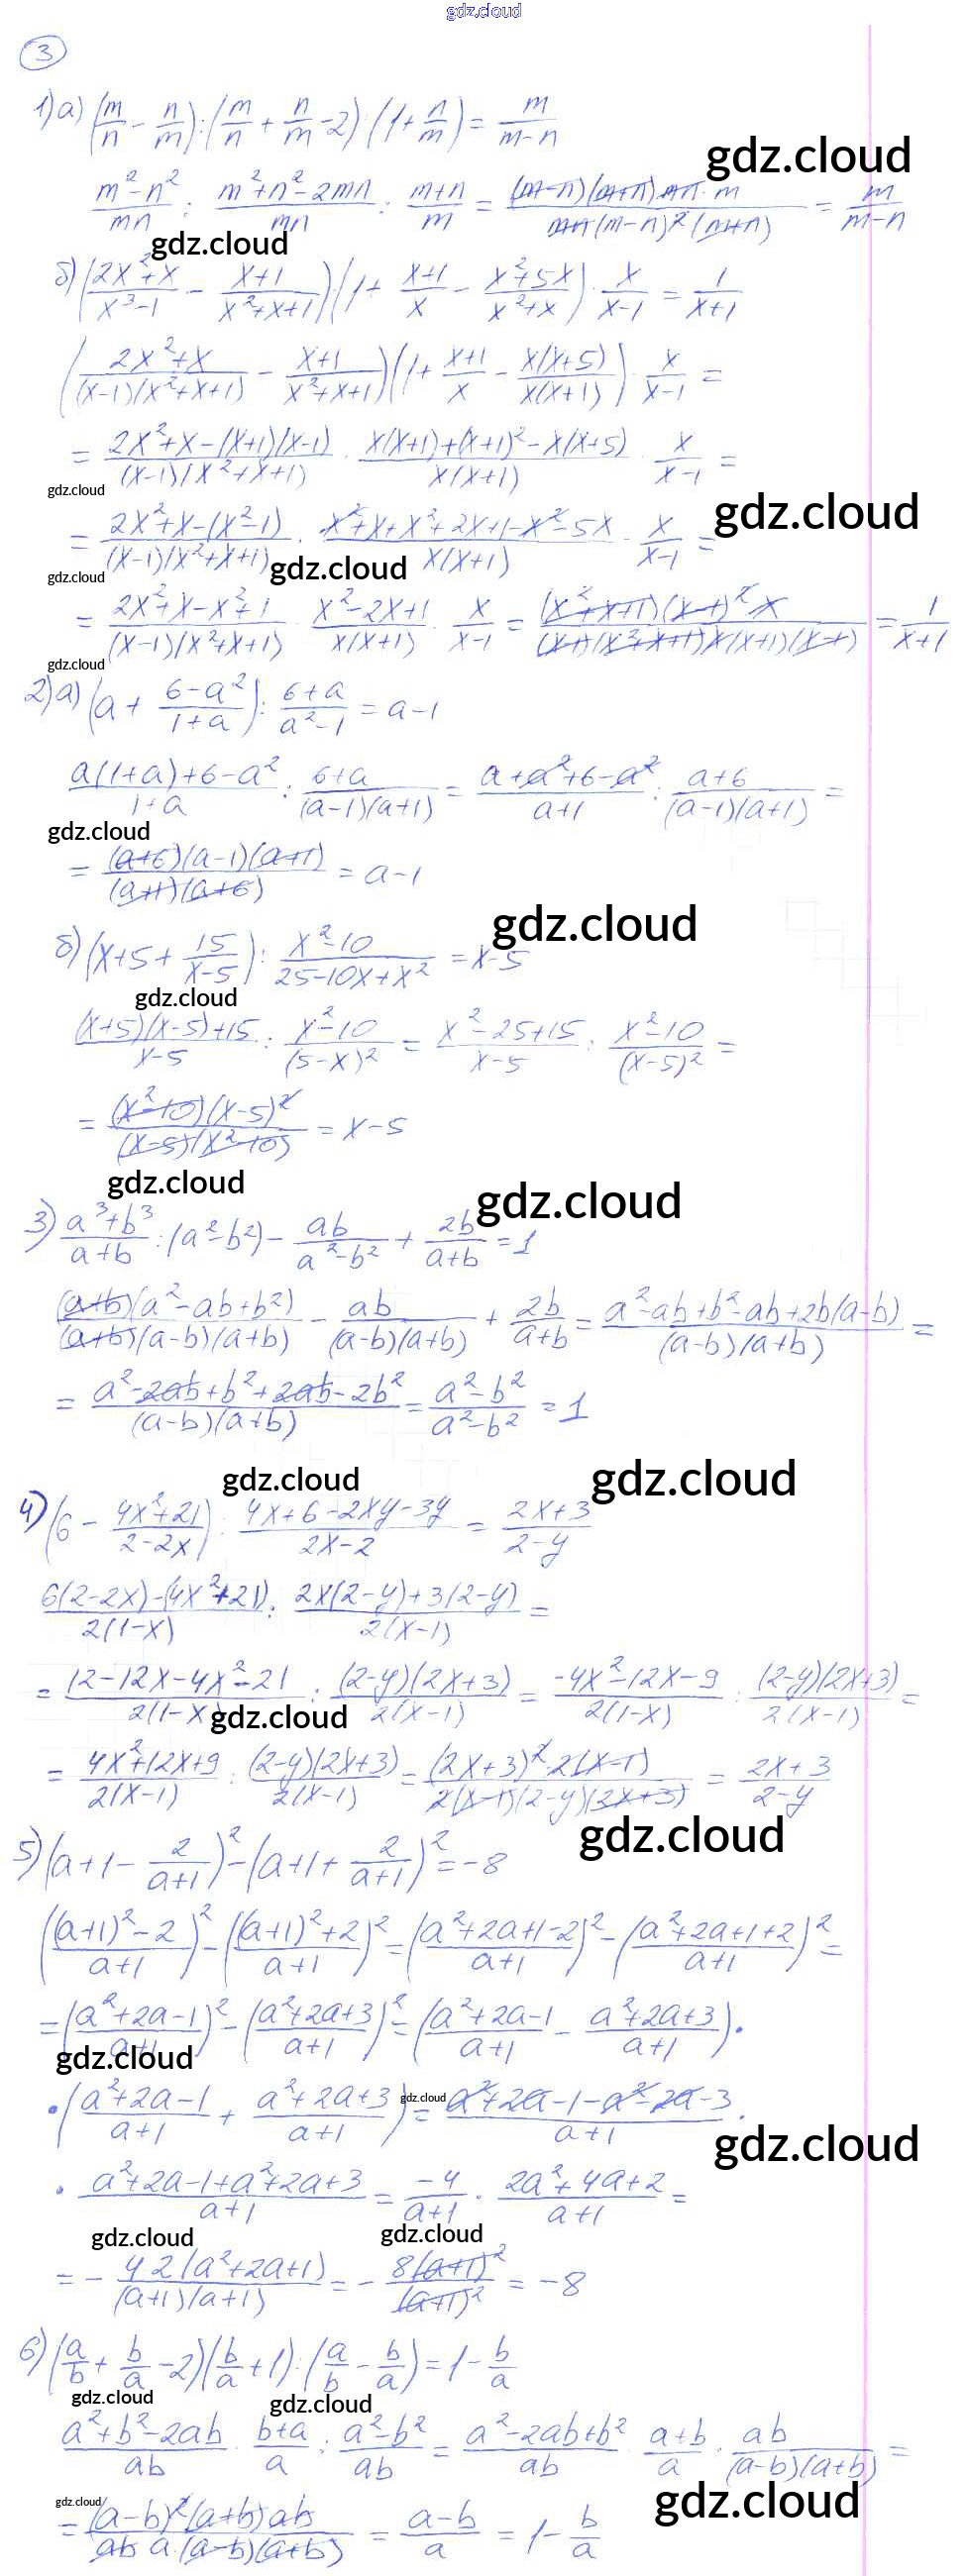 gdz.cloud
3
1) а) (m/n − n/m) : (m/n + n/m − 2) : (1 + n/m) = m/(m−n)
gdz.cloud
(m²−n²)/mn : (m²+n²−2mn)/mn : (m+n)/m = (m−n)(m+n)mn·m/(mn(m−n)²(m+n)) = m/(m−n)
gdz.cloud
б) ((2x²+x)/(x³−1) − (x+1)/(x²+x+1)) (1 + (x+1)/x − (x²+5x)/(x²+x)) · x/(x−1) = 1/(x+1)
((2x²+x)/((x−1)(x²+x+1)) − (x+1)/(x²+x+1)) (1 + (x+1)/x − x(x+5)/(x(x+1))) · x/(x−1) =
= (2x²+x−(x+1)(x−1))/((x−1)(x²+x+1)) · (x(x+1)+(x+1)²−x(x+5))/(x(x+1)) · x/(x−1) =
gdz.cloud
gdz.cloud
= (2x²+x−(x²−1))/((x−1)(x²+x+1)) · (x²+x+x²+2x+1−x²−5x)/(x(x+1)) · x/(x−1) =
gdz.cloud
gdz.cloud
= (2x²+x−x²+1)/((x−1)(x²+x+1)) · (x²−2x+1)/(x(x+1)) · x/(x−1) = (x²+x+1)(x−1)²x/((x−1)(x²+x+1)x(x+1)(x−1)) = 1/(x+1)
gdz.cloud
2) а) (a + (6−a²)/(1+a)) : (6+a)/(a²−1) = a−1
(a(1+a)+6−a²)/(1+a) : (6+a)/((a−1)(a+1)) = (a+a²+6−a²)/(a+1) : (a+6)/((a−1)(a+1)) =
gdz.cloud
= (a+6)(a−1)(a+1)/((a+1)(a+6)) = a−1
gdz.cloud
б) (x+5 + 15/(x−5)) : (x²−10)/(25−10x+x²) = x−5
gdz.cloud
((x+5)(x−5)+15)/(x−5) : (x²−10)/(5−x)² = (x²−25+15)/(x−5) : (x²−10)/(x−5)² =
= (x²−10)(x−5)²/((x−5)(x²−10)) = x−5
gdz.cloud
gdz.cloud
3) (a³+b³)/(a+b) : (a²−b²) − ab/(a²−b²) + 2b/(a+b) = 1
(a+b)(a²−ab+b²)/((a+b)(a−b)(a+b)) − ab/((a−b)(a+b)) + 2b/(a+b) = (a²−ab+b²−ab+2b(a−b))/((a−b)(a+b)) =
= (a²−2ab+b²+2ab−2b²)/((a−b)(a+b)) = (a²−b²)/(a²−b²) = 1
gdz.cloud
gdz.cloud
4) (6 − (4x²+21)/(2−2x)) : (4x+6−2xy−3y)/(2x−2) = (2x+3)/(2−y)
(6(2−2x)−(4x²+21))/(2(1−x)) : (2x(2−y)+3(2−y))/(2(x−1)) =
= (12−12x−4x²−21)/(2(1−x)) : (2−y)(2x+3)/(2(x−1)) = (−4x²−12x−9)/(2(1−x)) : (2−y)(2x+3)/(2(x−1)) =
gdz.cloud
= (4x²+12x+9)/(2(x−1)) : (2−y)(2x+3)/(2(x−1)) = (2x+3)²·2(x−1)/(2(x−1)(2−y)(2x+3)) = (2x+3)/(2−y)
gdz.cloud
5) (a+1 − 2/(a+1))² − (a+1 + 2/(a+1))² = −8
(((a+1)²−2)/(a+1))² − (((a+1)²+2)/(a+1))² = ((a²+2a+1−2)/(a+1))² − ((a²+2a+1+2)/(a+1))² =
= ((a²+2a−1)/(a+1))² − ((a²+2a+3)/(a+1))² = ((a²+2a−1)/(a+1) − (a²+2a+3)/(a+1)) ·
gdz.cloud
· ((a²+2a−1)/(a+1) + (a²+2a+3)/(a+1)) = (a²+2a−1−a²−2a−3)/(a+1) ·
gdz.cloud
gdz.cloud
· (a²+2a−1+a²+2a+3)/(a+1) = −4/(a+1) · (2a²+4a+2)/(a+1) =
gdz.cloud
gdz.cloud
= − 4·2(a²+2a+1)/((a+1)(a+1)) = − 8(a+1)²/(a+1)² = −8
6) (a/b + b/a − 2)(b/a + 1) : (a/b − b/a) = 1 − b/a
gdz.cloud
gdz.cloud
(a²+b²−2ab)/ab · (b+a)/a : (a²−b²)/ab = (a²−2ab+b²)/ab · (a+b)/a · ab/((a−b)(a+b)) =
gdz.cloud
gdz.cloud
= (a−b)²(a+b)ab/(ab·a·(a−b)(a+b)) = (a−b)/a = 1 − b/a